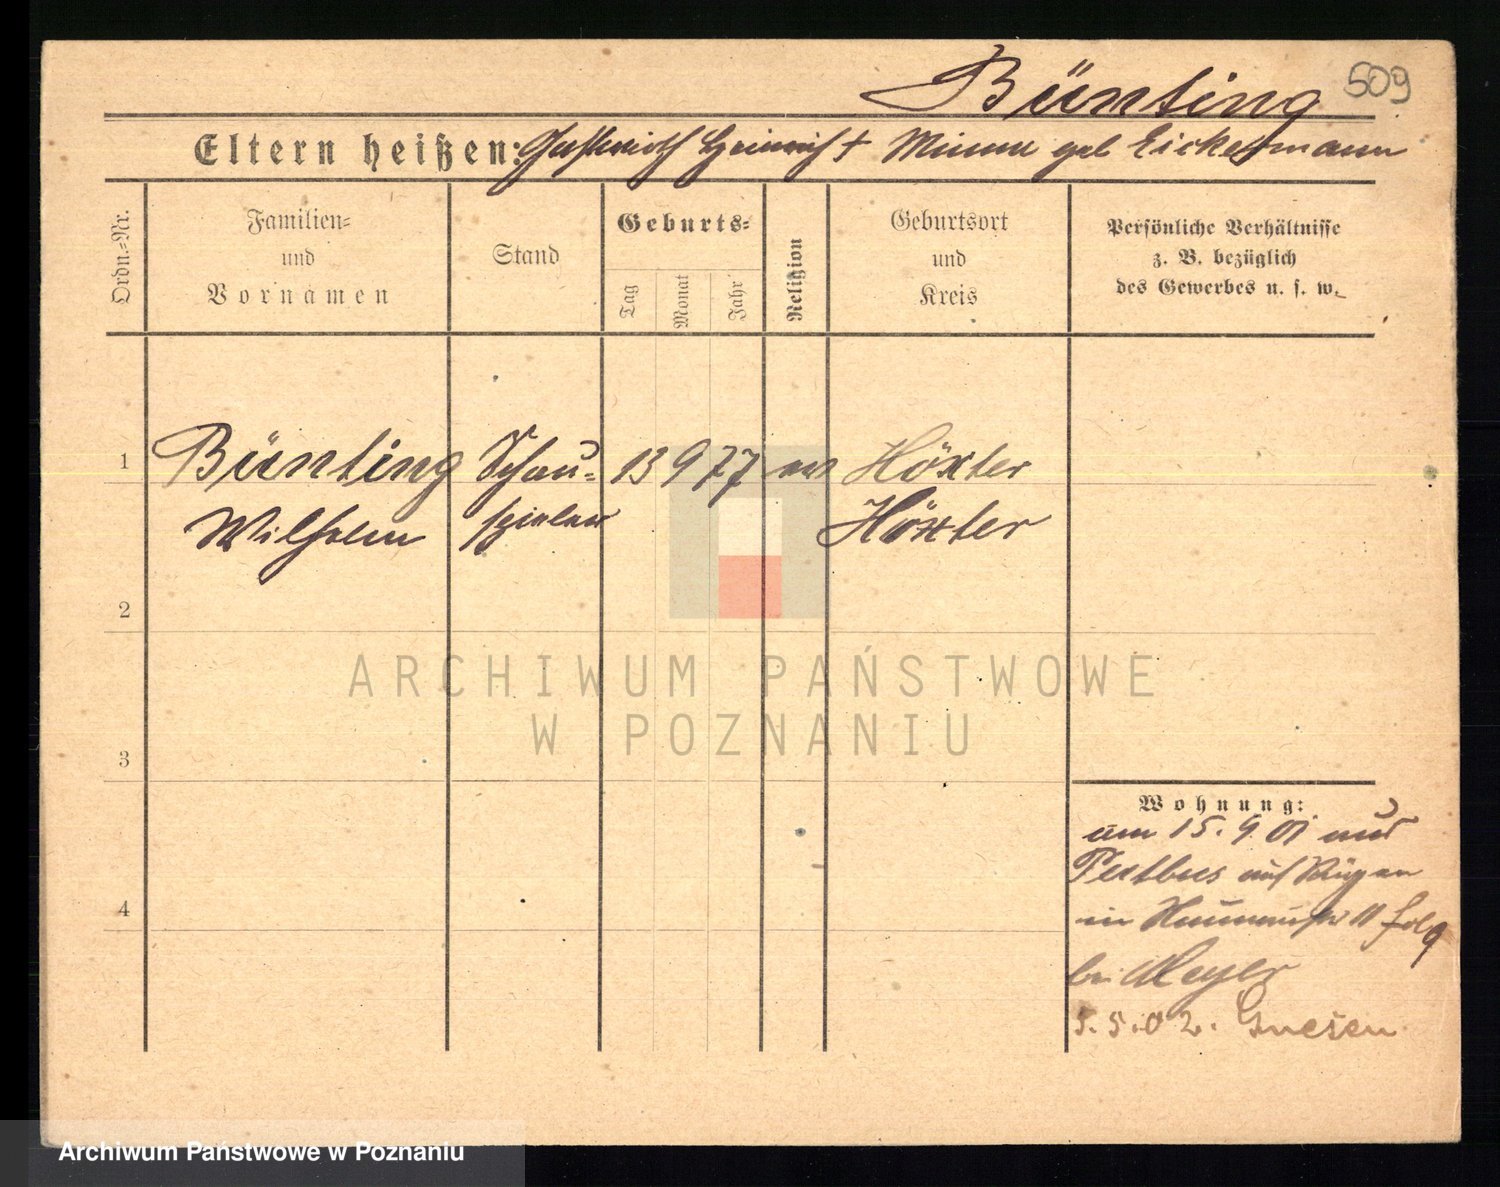 Bünting 509
Eltern heißen: Gastwirth Heinrich † Minna geb Eickermann
Ordn.-Nr.
Familien-
und
Vornamen
Stand
Geburts-
Tag
Monat
Jahr
Religion
Geburtsort
und
Kreis
Persönliche Verhältnisse
z. B. bezüglich
des Gewerbes u. s. w.
1 Bünting Schau- 13 9 77 ev Höxter
Wilhelm spieler Höxter
2
3
4
Wohnung:
am 15. 9. 01 aus
Putbus auf Rügen
in 11
bei Meyer
5. 5. 02. Gnesen
ARCHIWUM PAŃSTWOWE
W POZNANIU
Archiwum Państwowe w Poznaniu